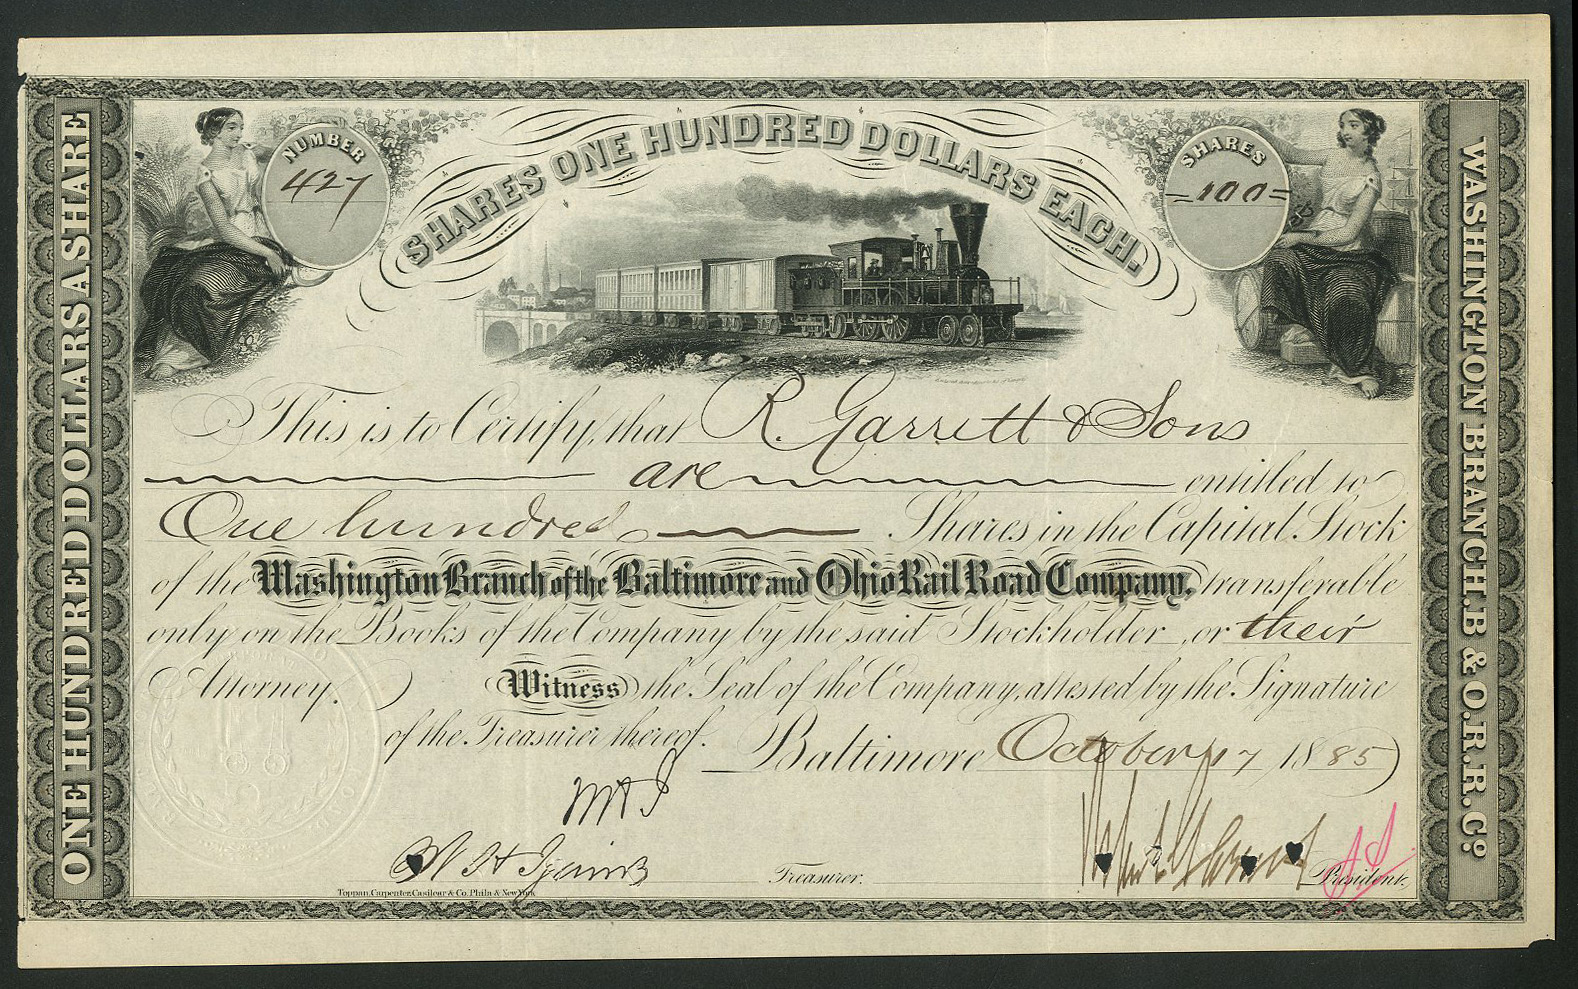 ONE HUNDRED DOLLARS A SHARE
NUMBER
427
SHARES ONE HUNDRED DOLLARS EACH.
SHARES
=100=
WASHINGTON BRANCH. B & O. R. R. Co.
This is to Certify, that R. Garrett & Sons
are entitled to
One hundred Shares in the Capital Stock
of the Washington Branch of the Baltimore and Ohio Rail Road Company, transferable
only on the Books of the Company by the said Stockholder, or their
Attorney. Witness the Seal of the Company, attested by the Signature
of the Treasurer thereof. Baltimore October 17 1885
W H I
Treasurer.
President.
Toppan, Carpenter, Casilear & Co. Phila. & New York